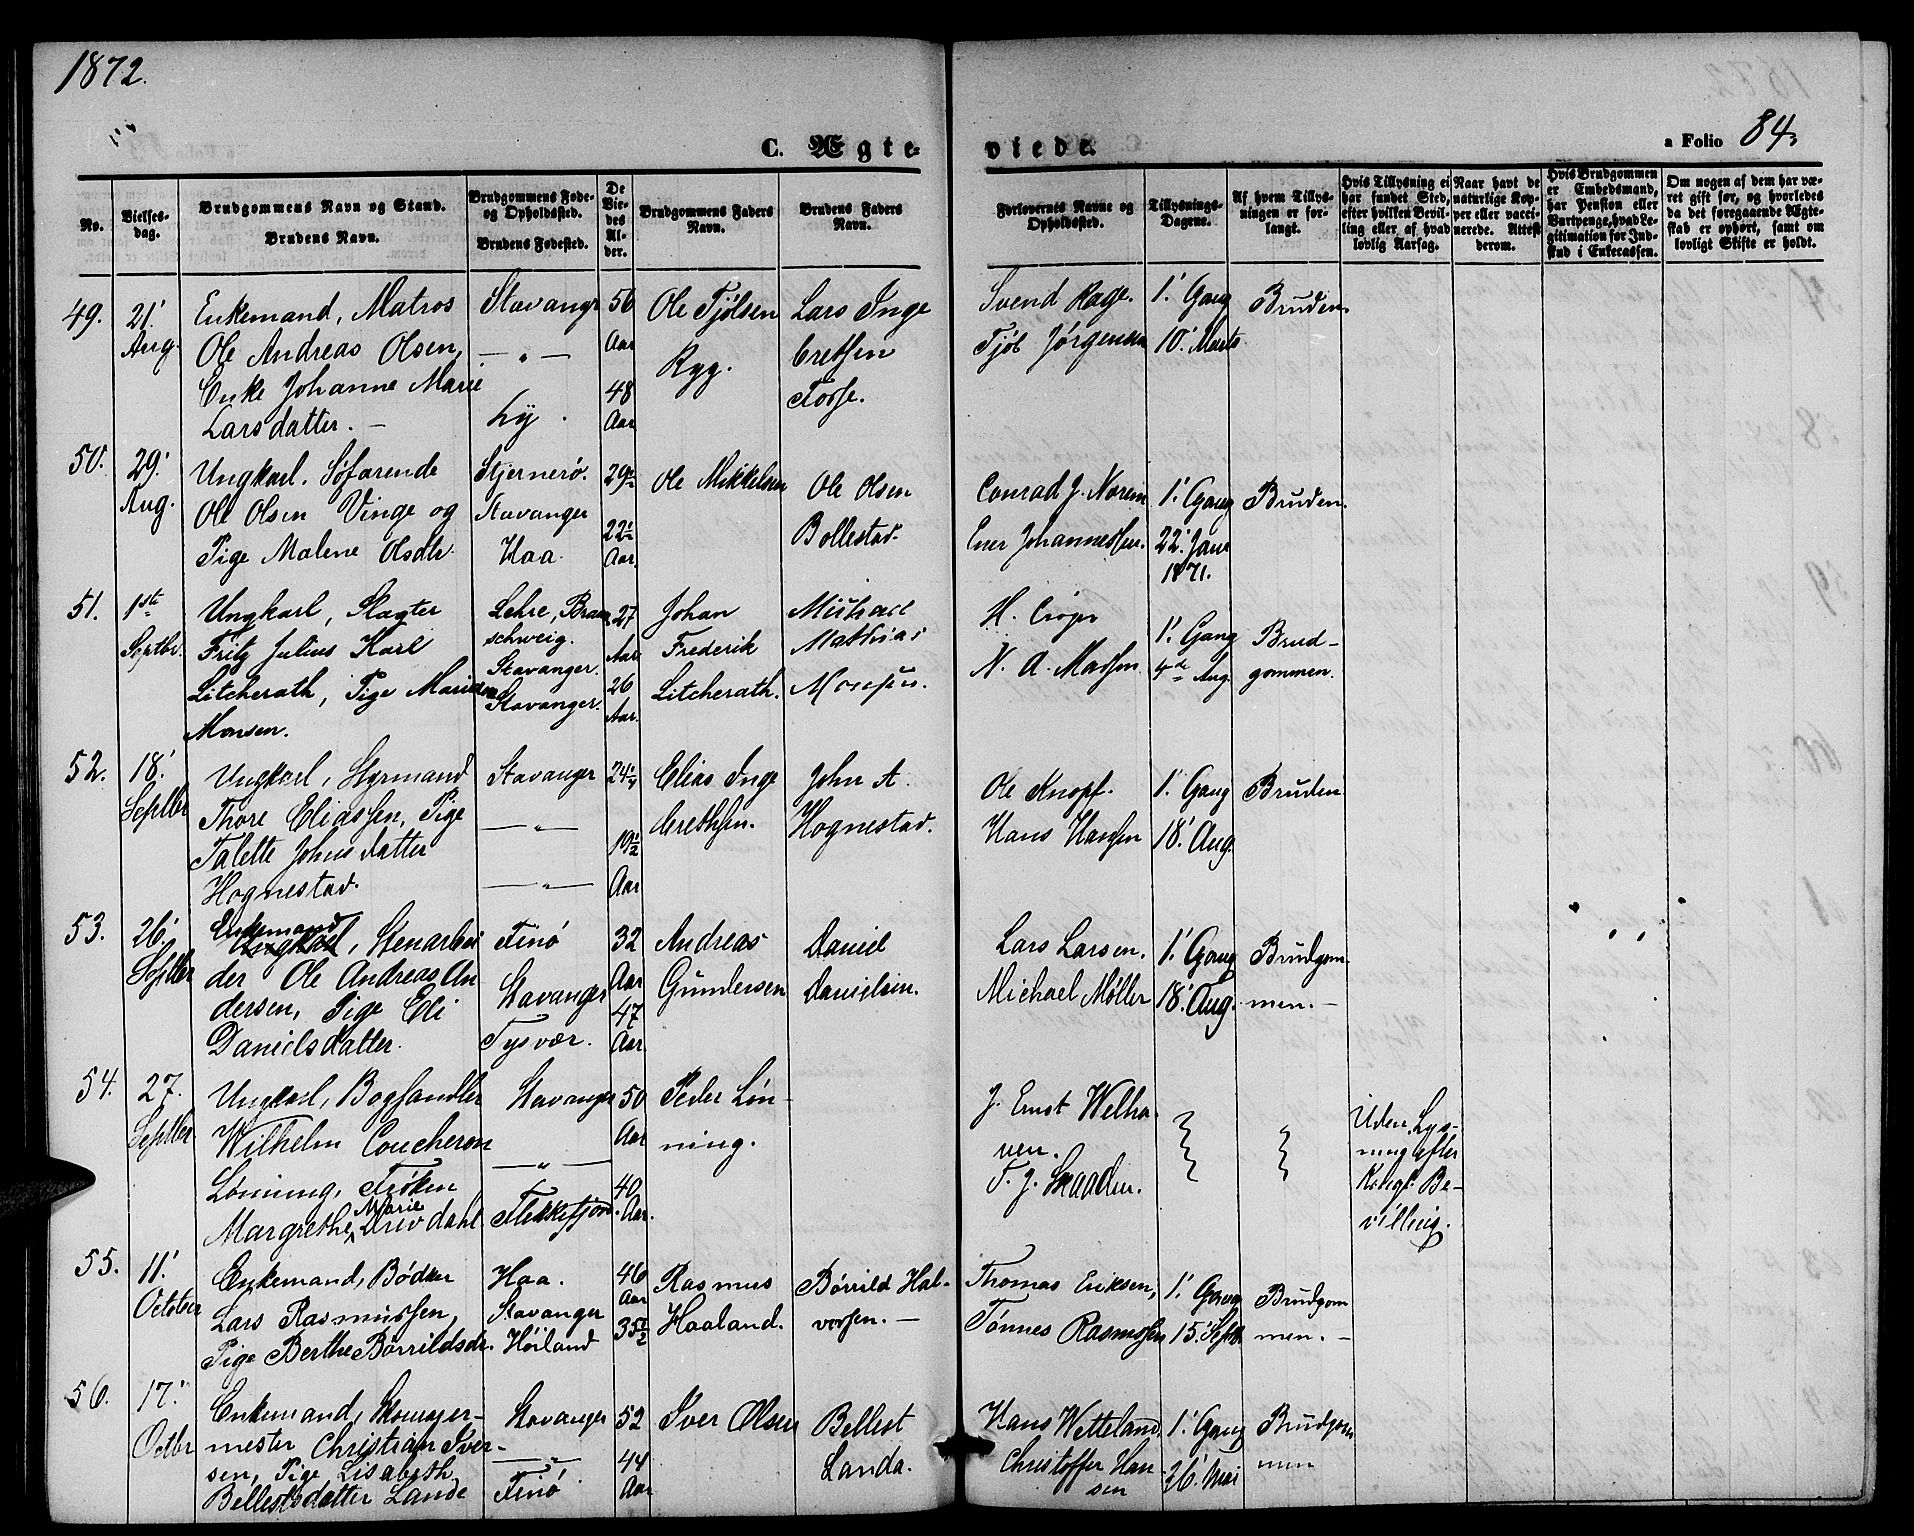 1872.
C. Ægte-
viede.
a Folio 84.
No.
Vielses-
dag.
Brudgommens Navn og Stand.
Brudens Navn.
Brudgommens Føde-
og Opholdssted.
Brudens Fødested.
De
Vie-
des
Al-
der.
Brudgommens Faders
Navn.
Brudens Faders
Navn.
Forlovernes Navne og
Opholdssted.
Tillysnings-
Dagene.
Af hvem Tillys-
ningen er for-
langt.
Hvis Tillysning ei
har fundet Sted,
efter hvilken Bevil-
ling eller af hvad
lovlig Aarsag.
Naar havt de
naturlige Kop-
per eller vacci-
nerede. Attest
derom.
Hvis Brudgommen
er Embedsmand,
har Pension eller
Vartpenge, hvad Le-
gitimation for Ind-
skud i Enkecassen.
Om nogen af dem har væ-
ret gift før, og hvorledes
da det foregaaende Ægte-
skab er ophørt, samt om
lovligt Skifte er holdt.
49.
21'
Aug.
Enkemand, Matros
Ole Andreas Olsen,
Enke Johanne Marie
Larsdatter. —
Stavanger
— " —
Lÿ.
56
Aar
48
Aar
Ole Tjølsen
Ryg.
Lars Inge
bretsen
Forse.
Svend Rage.
Tjøl Jørgensen
1' Gang
10' Marts
Bruden.
50.
29'
Aug.
Ungkarl, Søfarende
Ole Olsen Vinge og
Pige Malene Olsdtr.
Stjernerø.
Stavanger
Haa.
29
22½
Aar.
Ole Mikkelsen
Ole Olsen
Bollestad.
Conrad J. Norem
Ener Johannessen.
1' Gang
22' Janr
1871.
Bruden.
51.
1ste
Septbr.
Ungkarl, Slagter
Fritz Julius Karl
Litcherath, Pige Mariane
Monsen.
Lehre, Braun
schweig.
Stavanger.
Stavanger.
27
Aar.
26
Aar.
Johan
Frederik
Litcherath.
Michael
Mathias
Monsen.
H. Crøger
N. A. Madsen.
1' Gang
4de Aug.
Brud-
gommen.
52.
18'
Septbr
Ungkarl, Styrmand
Thore Eliassen, Pige
Talette Johnsdatter
Hognestad.
Stavanger
— " —
— " —
24¼
19½
Aar
Elias Inge
brethsen.
John A.
Hognestad.
Ole Knopf.
Hans Hansen
1' Gang
18' Aug.
Bruden
53.
26'
Septbr
Enkemand
Ungkarl, Stenarbei
der Ole Andreas An
dersen, Pige Eli
Danielsdatter.
Finø
Stavanger
Tysvær.
32
Aar
47
Aar.
Andreas
Gundersen
Daniel
Danielsen.
Lars Larsen.
Michael Møller
1' Gang
18' Aug.
Brudgom
men. —
54.
27.
Septbr.
Ungkarl, Boghandler
Wilhelm Coucheron
Lønning, Frøken
Marie
Margrethe Drivdahl
Stavanger
— " —
Flekkefjord.
50
Aar
40
Aar.
Peder Løn-
ning.
J. Ernst Welha-
ven.
T. J. Skaadm.
Uden Lys-
ning efter
Kongl. Be-
villing.
55.
11'
October
Enkemand, Bødker
Lars Rasmussen,
Pige Berthe Børrildsdr.
Haa.
Stavanger
Høiland
46
Aar
35½
Rasmus
Haaland.
Børrild Hal-
vorsen. —
Thomas Eriksen,
Tønnes Rasmussen
1' Gang
15' Septbr.
Brudgom
men. —
56.
17'
Octbr
Enkemand, Skomager-
mester Christian Iver-
sen, Pige Lisabeth
Bellestsdatter Lande
Stavanger
— " —
Finø
52
44
Aar
Iver Olsen
Bellest
Landa.
Hans Wetteland.
Christoffer Han-
sen
1' Gang
26' Mai
Brudgom
men